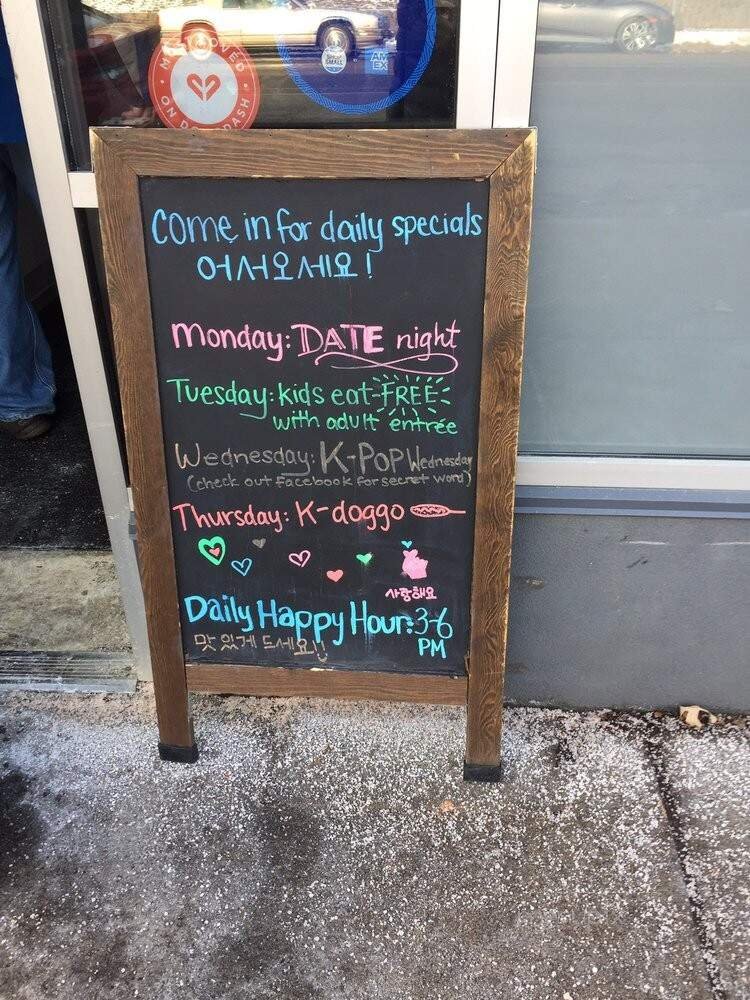 MOST LOVED
ON DOORDASH
SHOP SMALL
AM
EX
Come in for daily specials
어서오세요!
Monday: DATE night
Tuesday: kids eat FREE
with adult entrée
Wednesday: K-POP Wednesday
(check out Facebook for secret word)
Thursday: K-doggo
사랑해요
Daily Happy Hour: 3-6
PM
맛있게 드세요!!